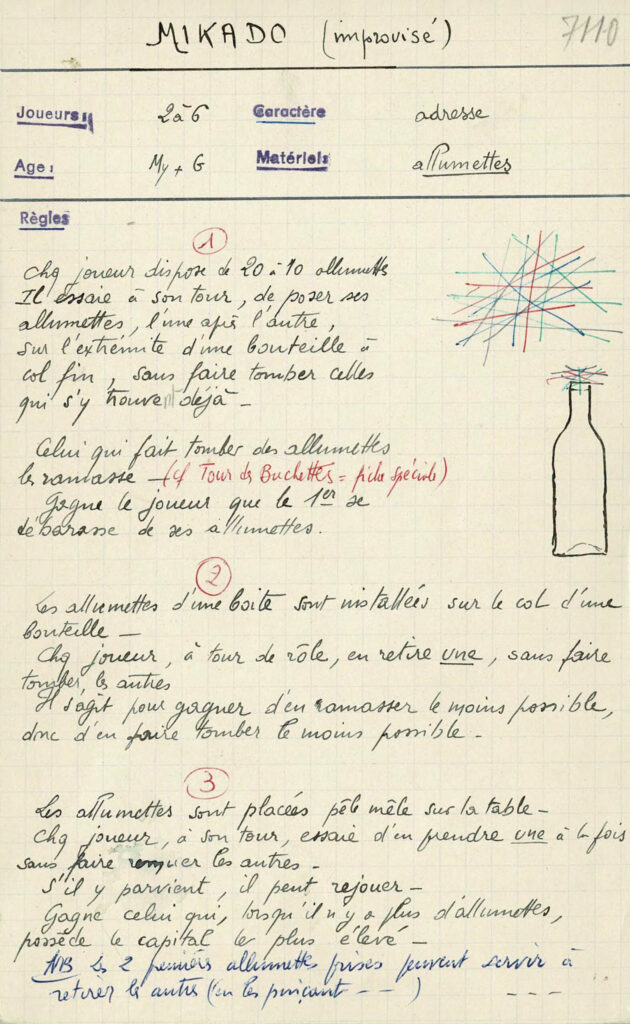 MIKADO (improvisé)
7110
Joueurs: 2 à 6 Caractère adresse
Age: My + G Matériel: allumettes
Règles
1
chq joueur dispose de 20 à 10 allumettes
Il essaie à son tour, de poser ses
allumettes, l'une après l'autre,
sur l'extrémité d'une bouteille à
col fin, sans faire tomber celles
qui s'y trouvent déjà –
Celui qui fait tomber des allumettes
les ramasse – (cf Tour des Buchettes = fiche spéciale)
Gagne le joueur que le 1er se
débarasse de ses allumettes.
2
Les allumettes d'une boite sont installées sur le col d'une
bouteille –
Chq joueur, à tour de rôle, en retire une, sans faire
tomber les autres
Il s'agit pour gagner d'en ramasser le moins possible,
donc d'en faire tomber le moins possible –
3
Les allumettes sont placées pêle mêle sur la table –
Chq joueur, à son tour, essaie d'en prendre une à la fois
sans faire remuer les autres –
S'il y parvient, il peut rejouer –
Gagne celui qui, lorsqu'il n'y a plus d'allumettes,
possède le capital le plus élevé –
NB les 2 premières allumettes prises peuvent servir à
retirer les autres (en les pinçant - - - ) - - -